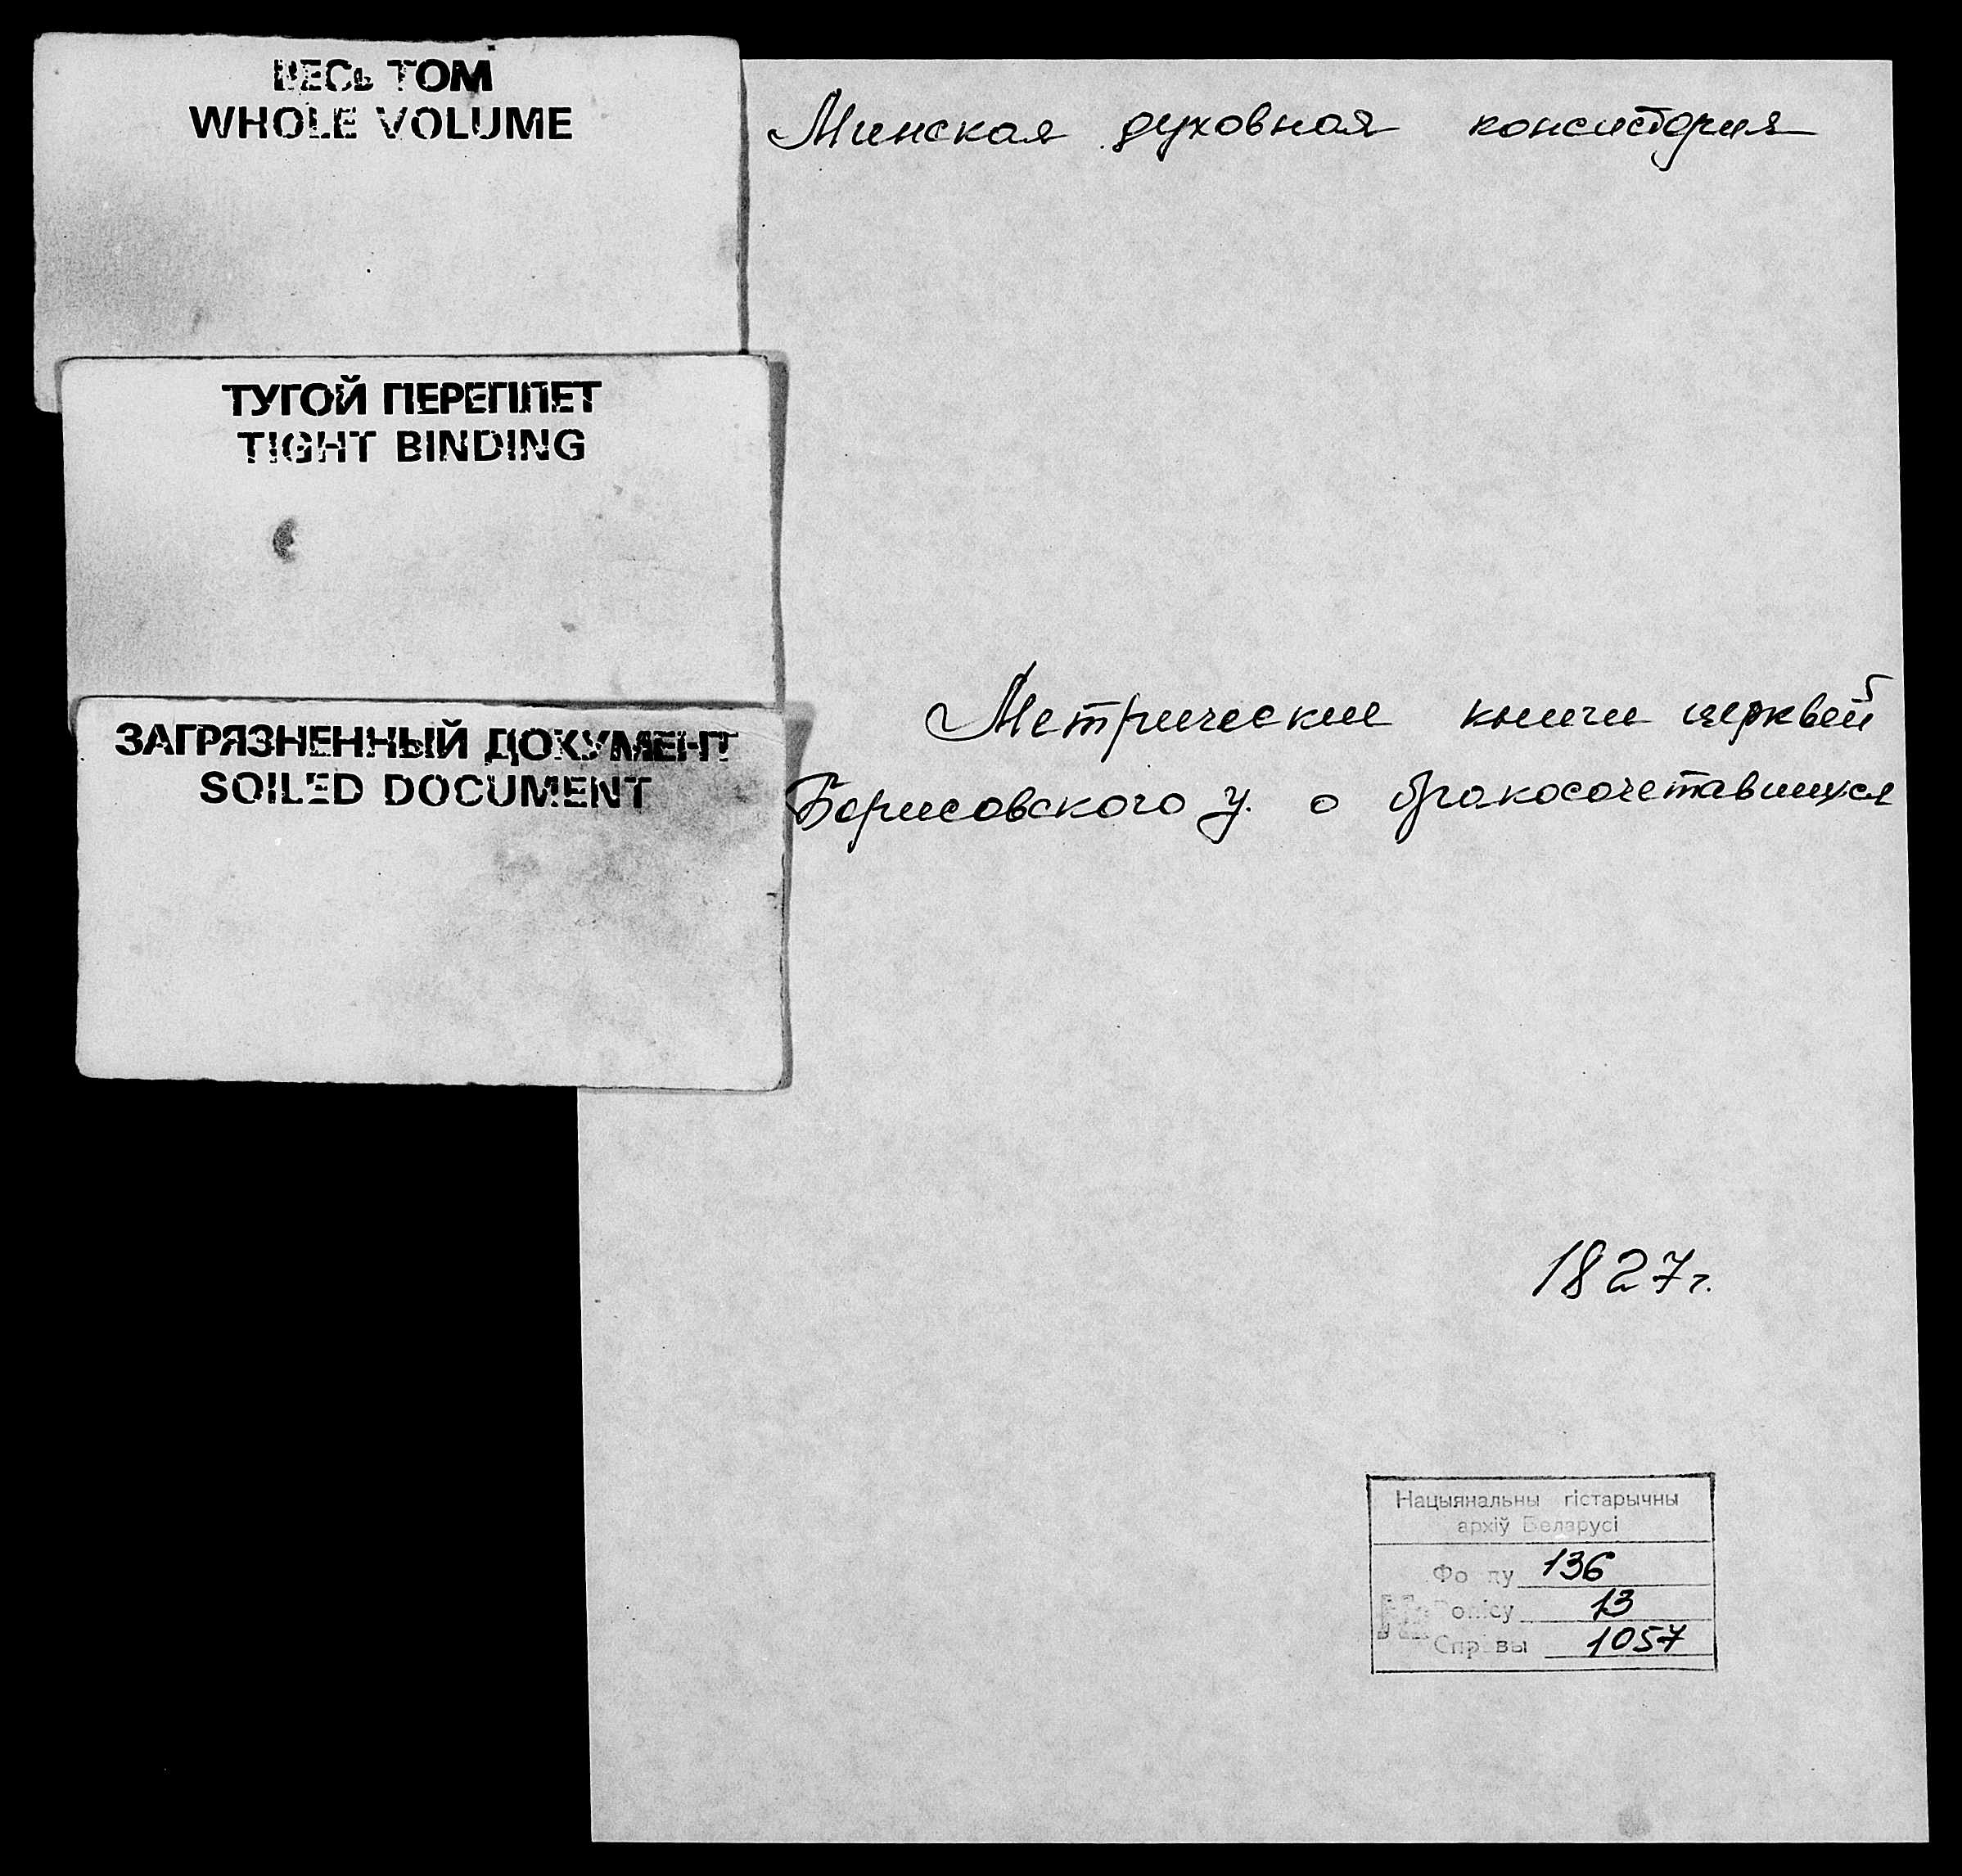 ВЕСЬ ТОМ
WHOLE VOLUME
ТУГОЙ ПЕРЕПЛЕТ
TIGHT BINDING
ЗАГРЯЗНЕННЫЙ ДОКУМЕНТ
SOILED DOCUMENT
Минская духовная консистория
Метрические книги церквей
Борисовского у. о бракосочетавшихся
1827г.
Нацыянальны гістарычны
архіў Беларусі
Фонду 136
Вопісу 13
Справы 1057